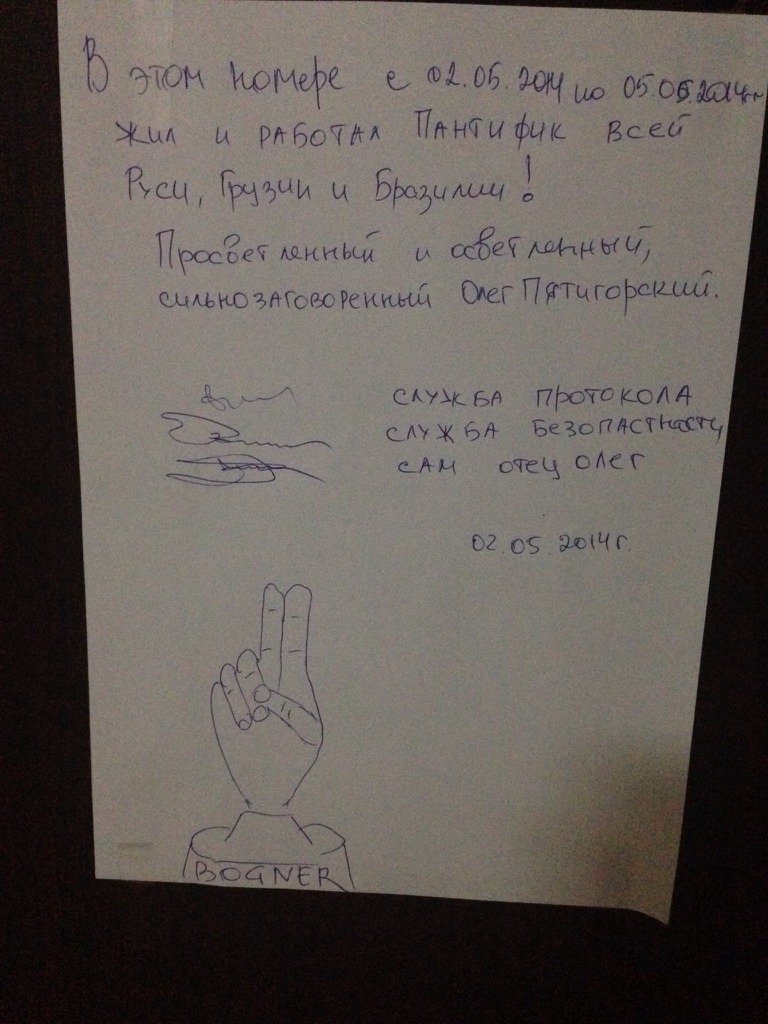 В этом номере с 02.05.2014 по 05.05.2014г.
жил и работал Пантифик всей
Руси, Грузии и Бразилии!
Просветленный и осветленный,
сильнозаговоренный Олег Пятигорский.
СЛУЖБА ПРОТОКОЛА
СЛУЖБА БЕЗОПАСТНОСТИ
САМ ОТЕЦ ОЛЕГ
02.05.2014г.
BOGNER